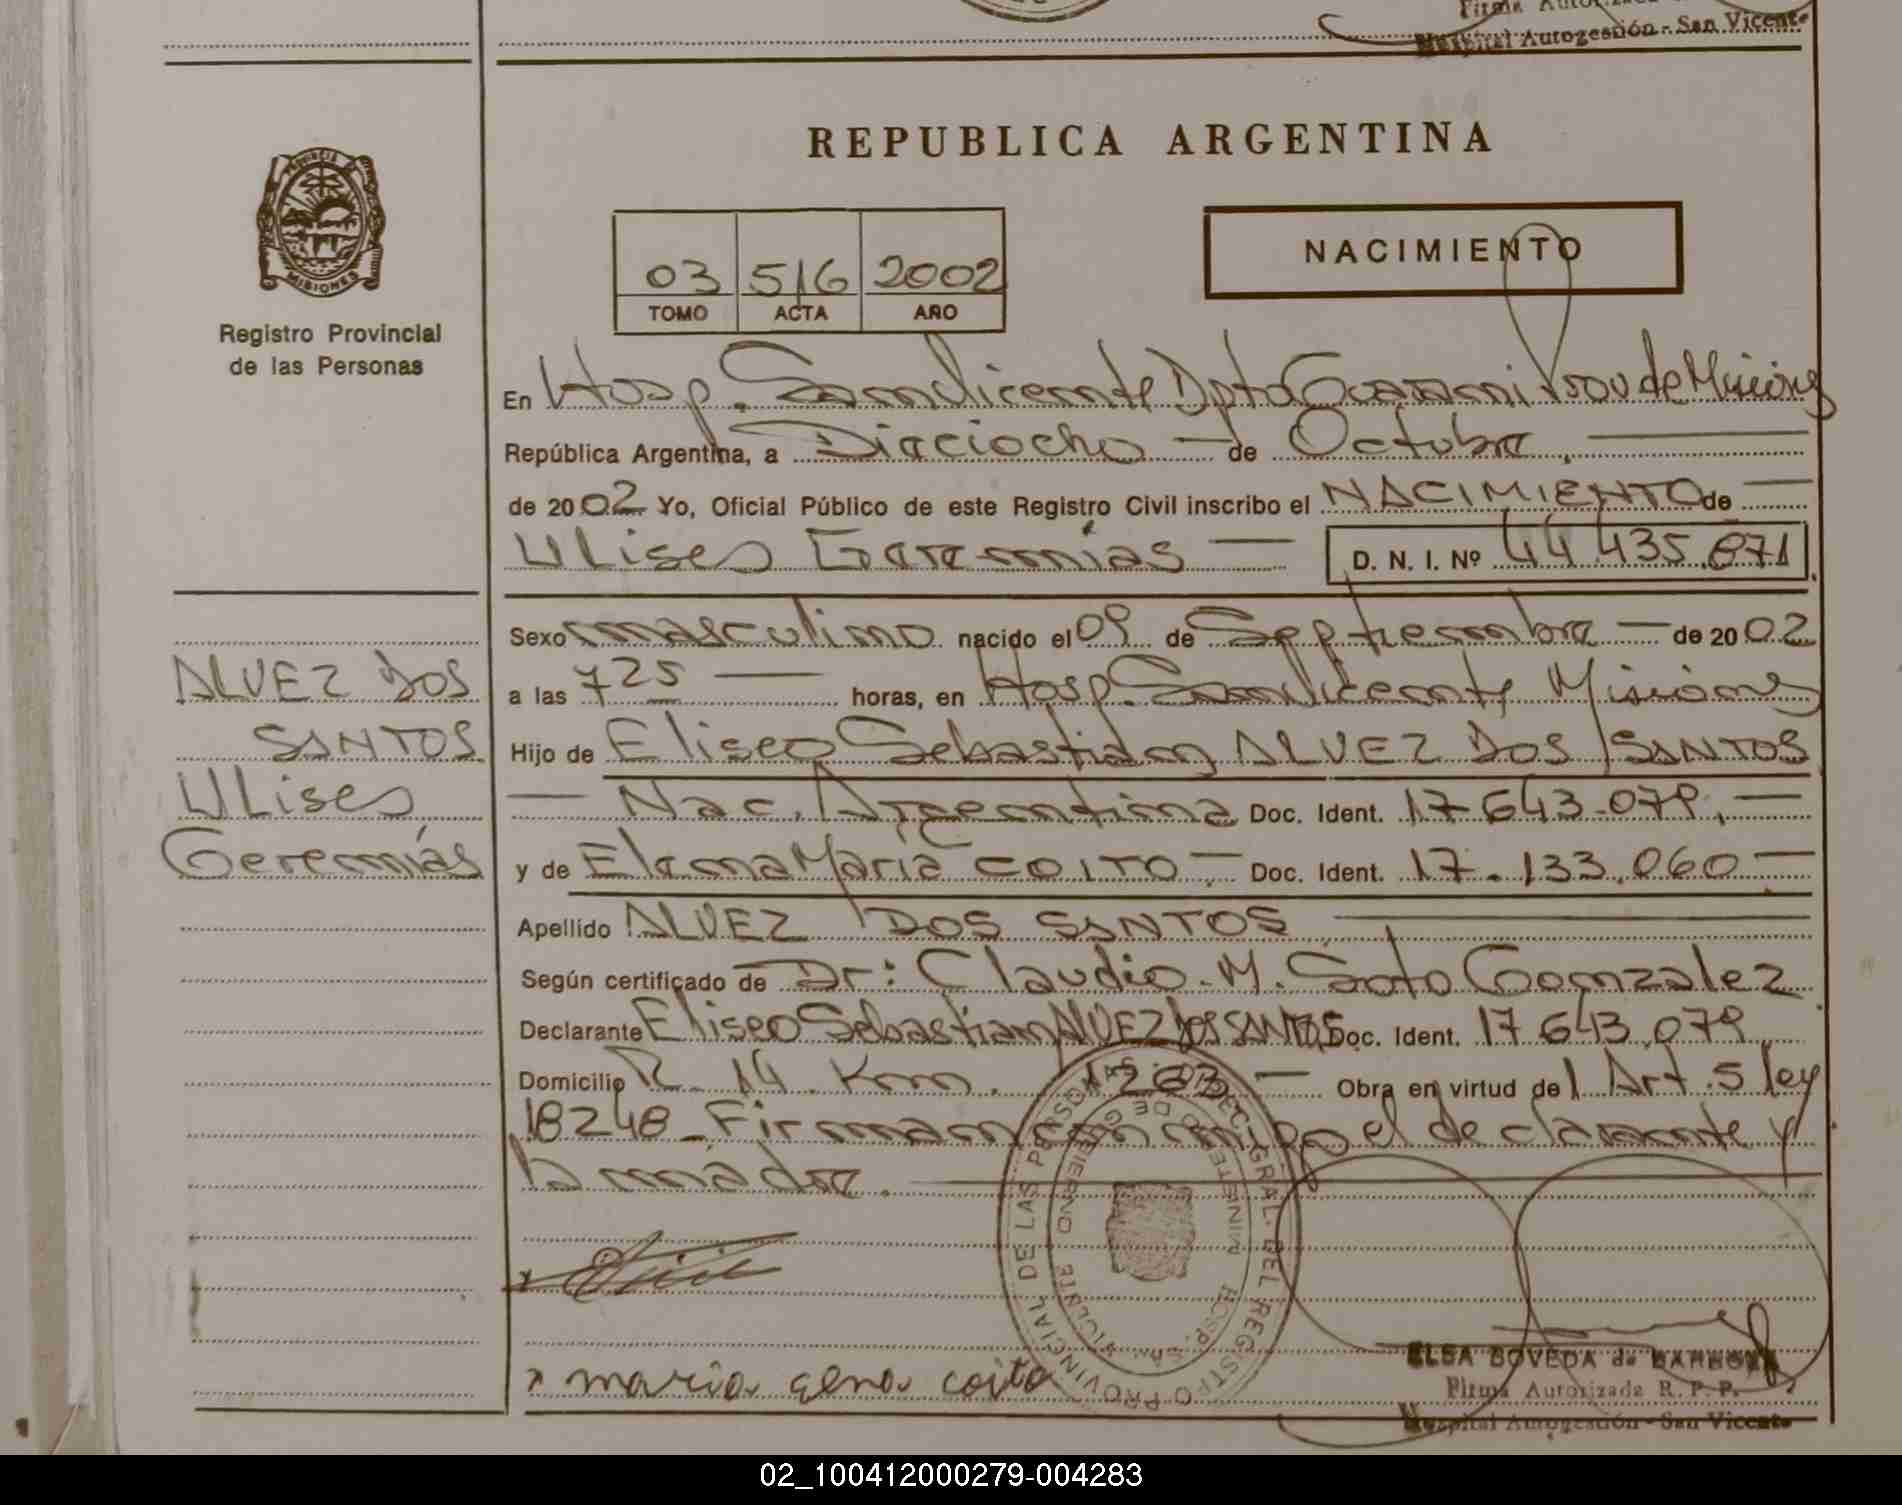 Firma Autorizada
Hospital Autogestión - San Vicente
PROVINCIA
MISIONES
Registro Provincial
de las Personas
ALVEZ DOS
SANTOS
Ulises
Geremías
REPUBLICA ARGENTINA
NACIMIENTO
03 516 2002
TOMO ACTA AÑO
En Hosp. San Vicente Dpto Guarani Prov de Misiones
República Argentina, a Dieciocho de Octubre
de 2002 Yo, Oficial Público de este Registro Civil inscribo el NACIMIENTO de
Ulises Geremías D. N. I. Nº 44 435.871
Sexo masculino nacido el 09 de Septiembre de 2002
a las 725 horas, en Hosp. San Vicente Misiones
Hijo de Eliseo Sebastian ALVEZ DOS SANTOS
Nac. Argentina Doc. Ident. 17 643.079
y de Elena Maria COITO Doc. Ident. 17.133.060
Apellido ALVEZ DOS SANTOS
Según certificado de Dr: Claudio. M. Soto Gonzalez
Declarante Eliseo Sebastian ALVEZ DOS SANTOS Doc. Ident. 17 643.079
Domicilio R. 14 Km. 1263 Obra en virtud del Art. 5 ley
18248 Firman conmigo el declarante y
la madre.
DEL REGISTRO PROVINCIAL DE LAS PERSONAS
MINISTERIO DE GOBIERNO
HOSP. SAN VICENTE
x maria elena coito
ELSA BOVEDA de BARBOZA
Firma Autorizada R. P. P.
Hospital Autogestión - San Vicente
02_100412000279-004283